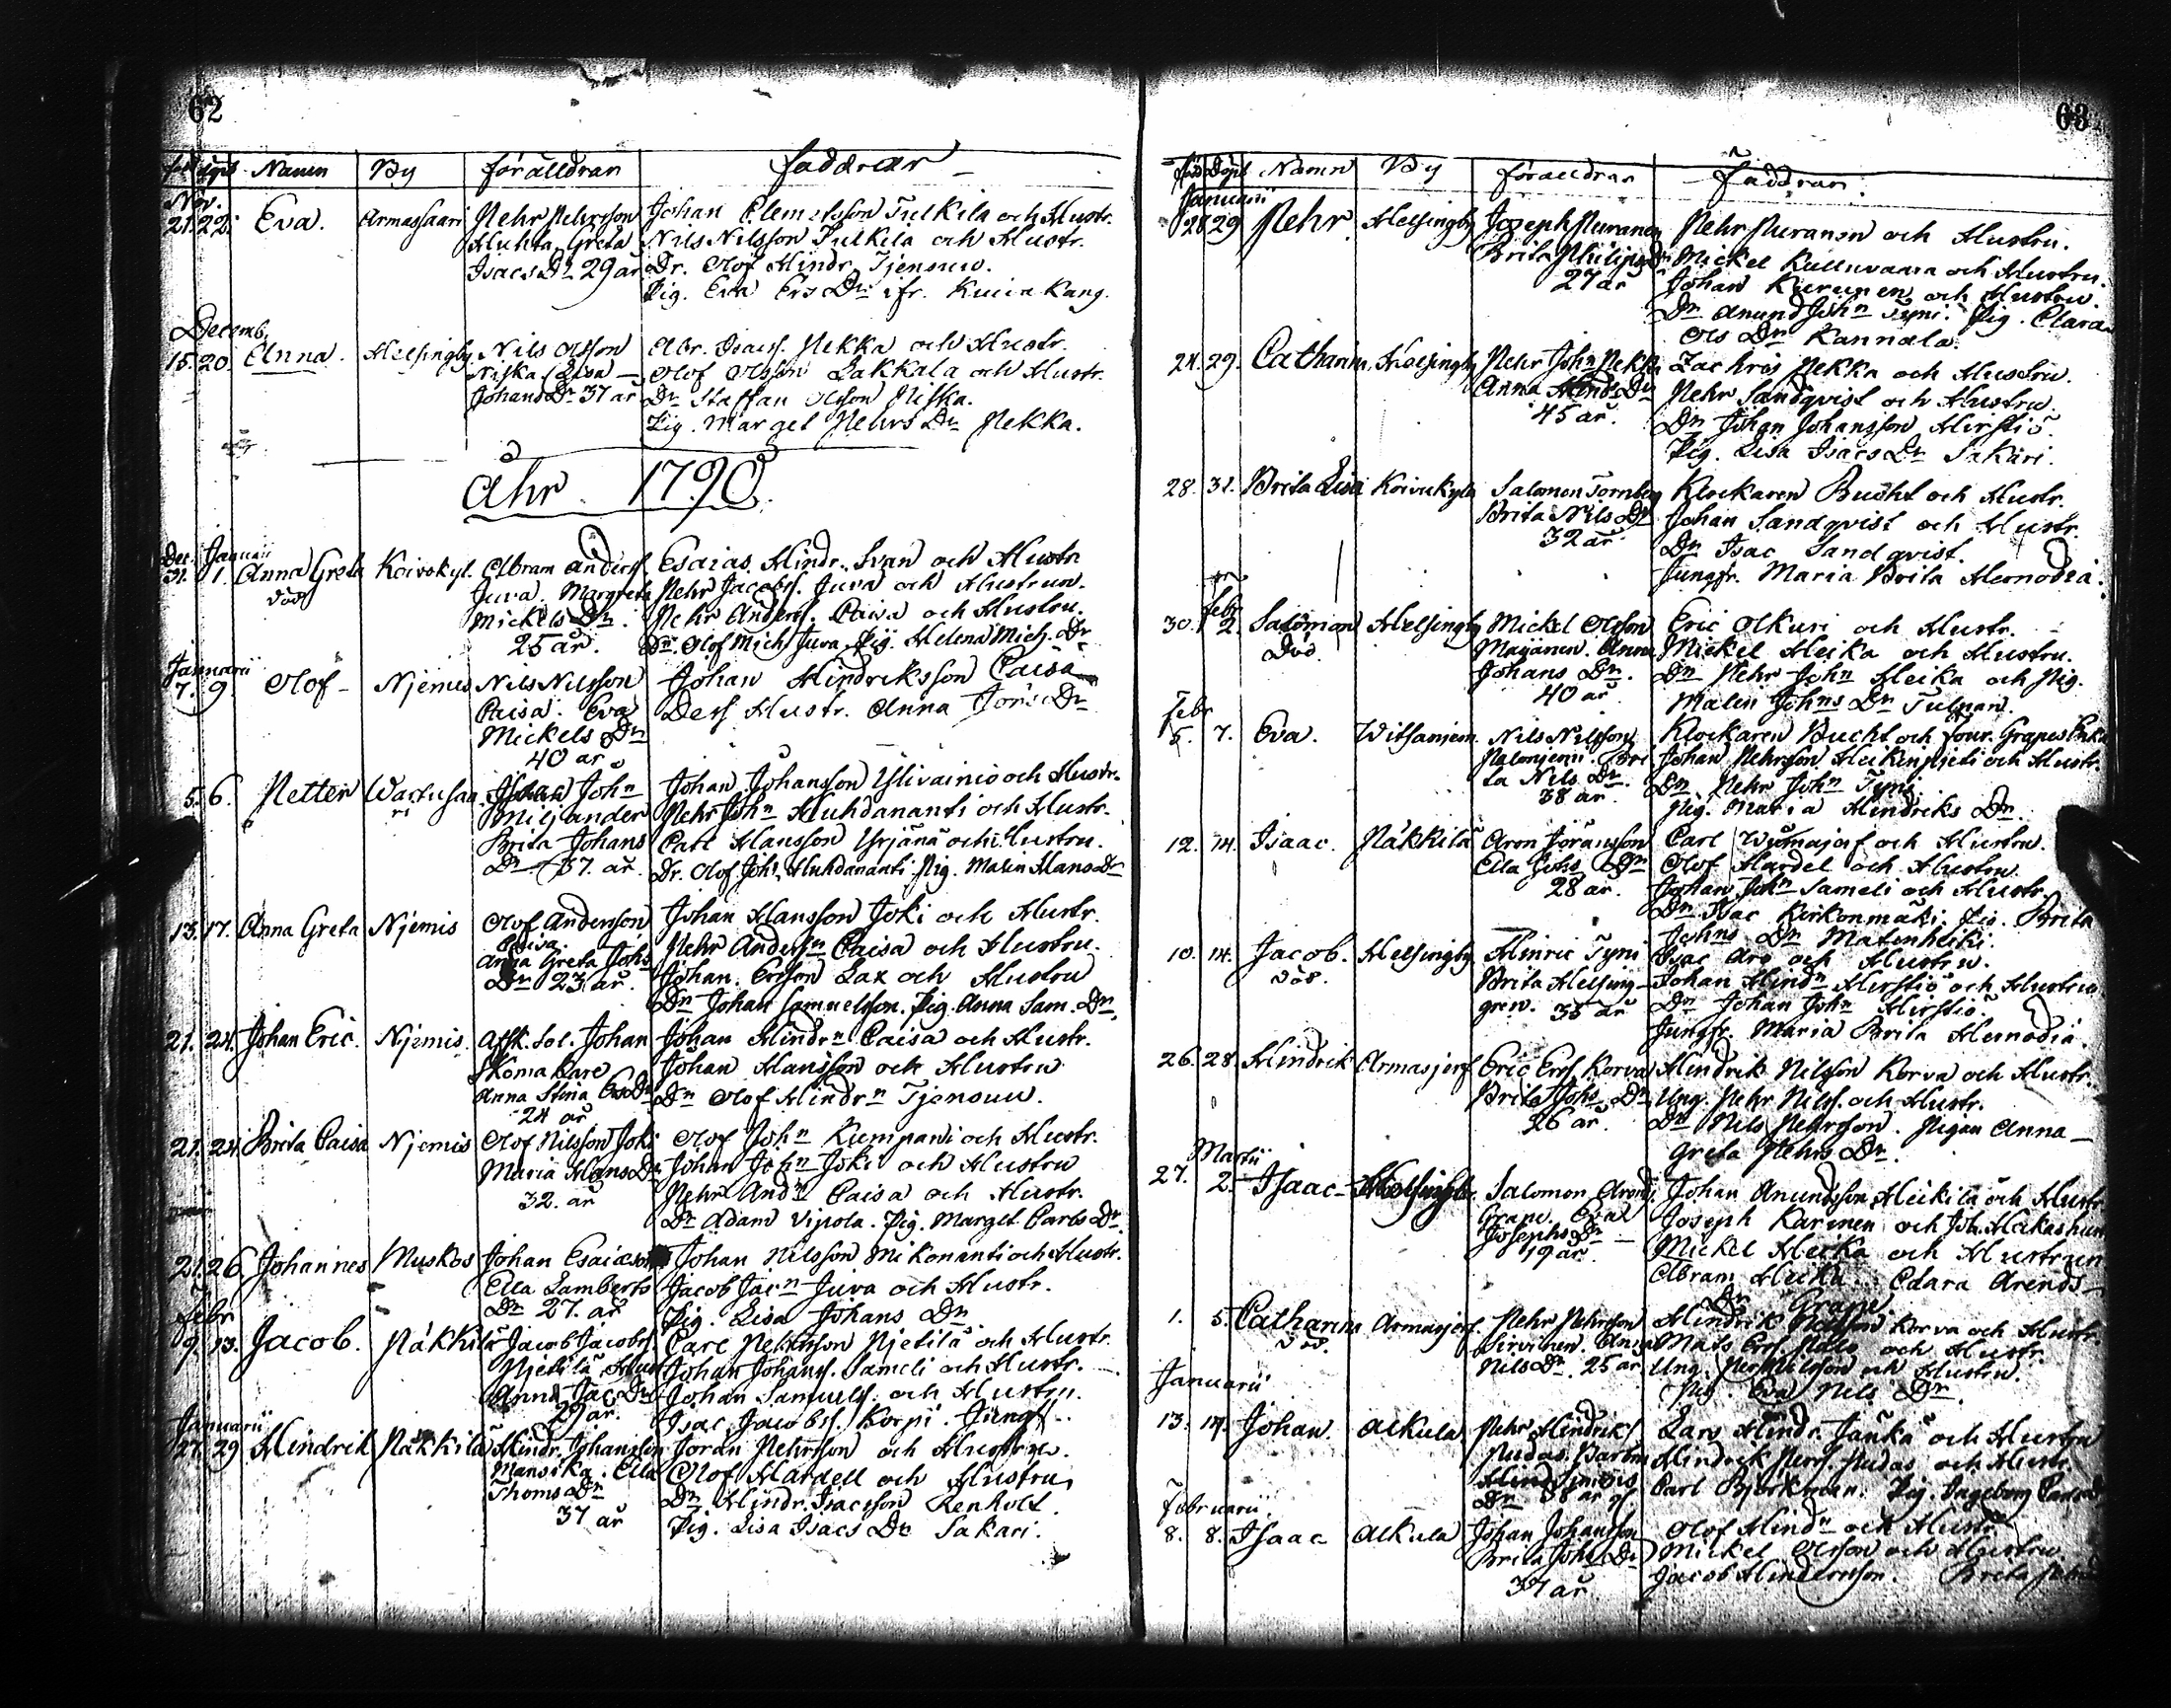 62
Namn By föräldran faddrar
Nov.
21. 22. Eva. Armassaari Pehr Pehrsson Johan Clemetsson Tulkila och Hustr.
Huhta Greta Nils Nilsson Tulkila och Hustr.
Isacs Dr 29 år Dr. Olof Hindr. Tjensuu.
Pig. Eva Ers Dr ifr. Kuiva Kang.
Decemb.
15. 20. Anna. Helsingby Nils Olsson Abr. Isacss. Pekka och Hustr.
Niska Lisa Olof Olsson Lakkala och Hustr.
Johans Dr 37 år Dr Staffan Olsson Niska.
Pig. Marget Pehrs Dr Pekka.
Åhr 1790.
Dec. Januarii
31. 1. Anna Greta Koivokyl. Abram Anderss. Esaias Hindr. Svan och Hustr
död Juva. Margreta Pehr Jacobss. Juva och Hustrun.
Mickels Dr. Pehr Anderss. Paisa och Hustru.
25 år. Dr. Olof Mich. Juva. Pig. Helena Mich. Dr
Januarii
7. 9 Olof Njemis Nils Nilsson Johan Hindriksson Paisa
Paisa. Eva Dess Hustr. Anna Dr
Mickels Dr
40 år
5. 6. Petter Wartusaari John Johan Johansson Ylivainio och Hustr.
Miljander Pehr John Huhdananti och Hustr.
Brita Johans Carl Hansson Yrjänä och Hustru.
Dr 37. år. Dr. Olof Johs. Huhdananti. Pig. Malin Hans Dr
13. 17. Anna Greta Njemis Olof Andersson Johan Hansson Joki och Hustr.
Paisa. Pehr Andersn Paisa och Hustru.
Anna Greta Johs Johan Ersson Lax och Hustru
Dr 23 år. Dr Johan Samuelsson. Pig. Anna Sam. Dr.
21. 24. Johan Eric. Njemis. Afsk. Sol. Johan Johan Hindrn Paisa och Hustr.
Skomakare Johan Hansson och Hustru
Anna Stina Ers Dr Dr Olof Hindrn Tjensuu.
24 år
21. 24. Brita Caisa Njemis Olof Nilsson Joki Olof John Kumpani och Hustr.
Maria Hans Dr Johan John Joki och Hustru
32. år Pehr Andn Paisa och Hustr.
Dr Adam Vipola. Pig. Marget Carls Dr.
21. 26. Johannes Muskos Johan Esaiasson Johan Nilsson Mikonanti och Hustr.
Ella Lamberts Jacob Jacn Juva och Hustr.
Dr 27. år Pig. Lisa Johans Dr
Febr
9. 13. Jacob. Päkkilä Jacob Jacobs. Carl Pehrsson Pjetilä och Hustr.
Pjetilä Hust Johan Johanss. Sameli och Hustr.
Anna Jac. Dr Johan Samuelss. och Hustru.
29 år. Isac Jacobss. Korpi. Jungf.
Januarii
27. 29 Hindrik Päkkilä Hindr. Johansson Joran Pehrsson och Hustru.
Mansika. Ella Olof Mardell och Hustru
Thoms Dr Dr Hindr. Isacsson Renholt.
37 år Pig. Lisa Isacs Dr Sakari.
63
föd Döpt Namn By föräldran faddrar.
Januarii
28 29 Pehr. Helsingby Joseph Muranen Pehr Muranen och Hustru.
Brita Philips Dr Mickel Kullunvaara och Hustru.
27 år Johan Kurunen och Hustru.
Dr Anund John Tyni. Pig. Clara
Ols Dr Kannala.
24. 29. Catharina. Helsingby Pehr John Pekka Zachris Pekka och Hustru.
Anna Hinds Dr Pehr Sandqvist och Hustru.
45 år. Dr Johan Johansson Hirstiö.
Pig. Lisa Isacs Dr Sakari.
28. 31. Brita Lisa Koivukyla Salomon Tornberg Klockaren Bucht och Hustr.
Brita Nils Dr Johan Sandqvist och Hustr.
32 år Dr Isac Sandqvist.
Jungfr. Maria Brita Hernodia.
febr
30. 2. Salomon Helsingby Mickel Olsson Eric Alkuri och Hustr.
Död. Mayanen. Anna Mickel Heika och Hustru.
Johans Dr. Dr Pehr John Heika och Pig.
40 år Malin Johns Dr Tulpan.
Febr
5. 7. Eva. Witsaniemi Nils Nilsson Klockaren Bucht och four. Grapes Enka
Palonjemi. Bri Johan Pehrsson Heikinpieti och Hustr.
ta Nils Dr. Dr Pehr John Tyni.
38 år. Pig. Maria Hindriks Dr.
12. 14. Isaac. Päkkilä Aron Joransson Carl Wuomajerf och Hustru.
Ella Johs Dr Olof Mardel och Hustru
28 år. Johan John Sameli och Hustr.
Dr Isac Kirkonmäki. Pig. Brita
Johns Dr Matinheiki.
10. 14. Jacob. Helsingby Hinric Tyni Isac Aro och Hustru.
död. Brita Helsing- Johan Hindn Hirstiö och Hustru
gren. 38 år Dr Johan John Hirstiö.
Jungfr. Maria Brita Hernodia.
26. 28. Hindrik Armasjerf Eric Erss. Korva Hindrik Nilsson Korva och Hustr.
Brita Johs Dr Ung. Pehr Nilss. och Hustr.
26 år. Dr Nils Pehrsson. Pigan Anna
Greta Pehrs Dr.
Martii
27. 2. Isaac Helsingby. Salomon Arends Johan Anundsson Heikilä och Hustr
Grape. Eva Joseph Karinen och Joh. Makes hust
Josephs Dr Mickel Heika och Hustrun
19 år. Abram Heika. Clara Arends
Dr Grape
1. 5. Catharina Armasjerf. Pehr Pehrsson Hindrik Korva och Hustr.
död. Sirvinen. Anna Mats Erss. Palo och Hustr.
Nils Dr. 25 år Ung. Pehr Nilsson och Hustru.
Pig. Eva Nils Dr.
Januarii
13. 14. Johan. Alkula Pehr Hindrikss Lars Hindr. Jänkä och Hustru
Pudas. Barbra Hindrik Perss. Pudas och Hustr.
Dr 38 år Carl Björkman. Pig. Ingeborg
Februarii
8. 8. Isaac Alkula Johan Johansson Olof Hindn och Hustr.
Brita Johs Dr Mickel Olsson och Hustru
37 år Jacob Hindersson. Brita